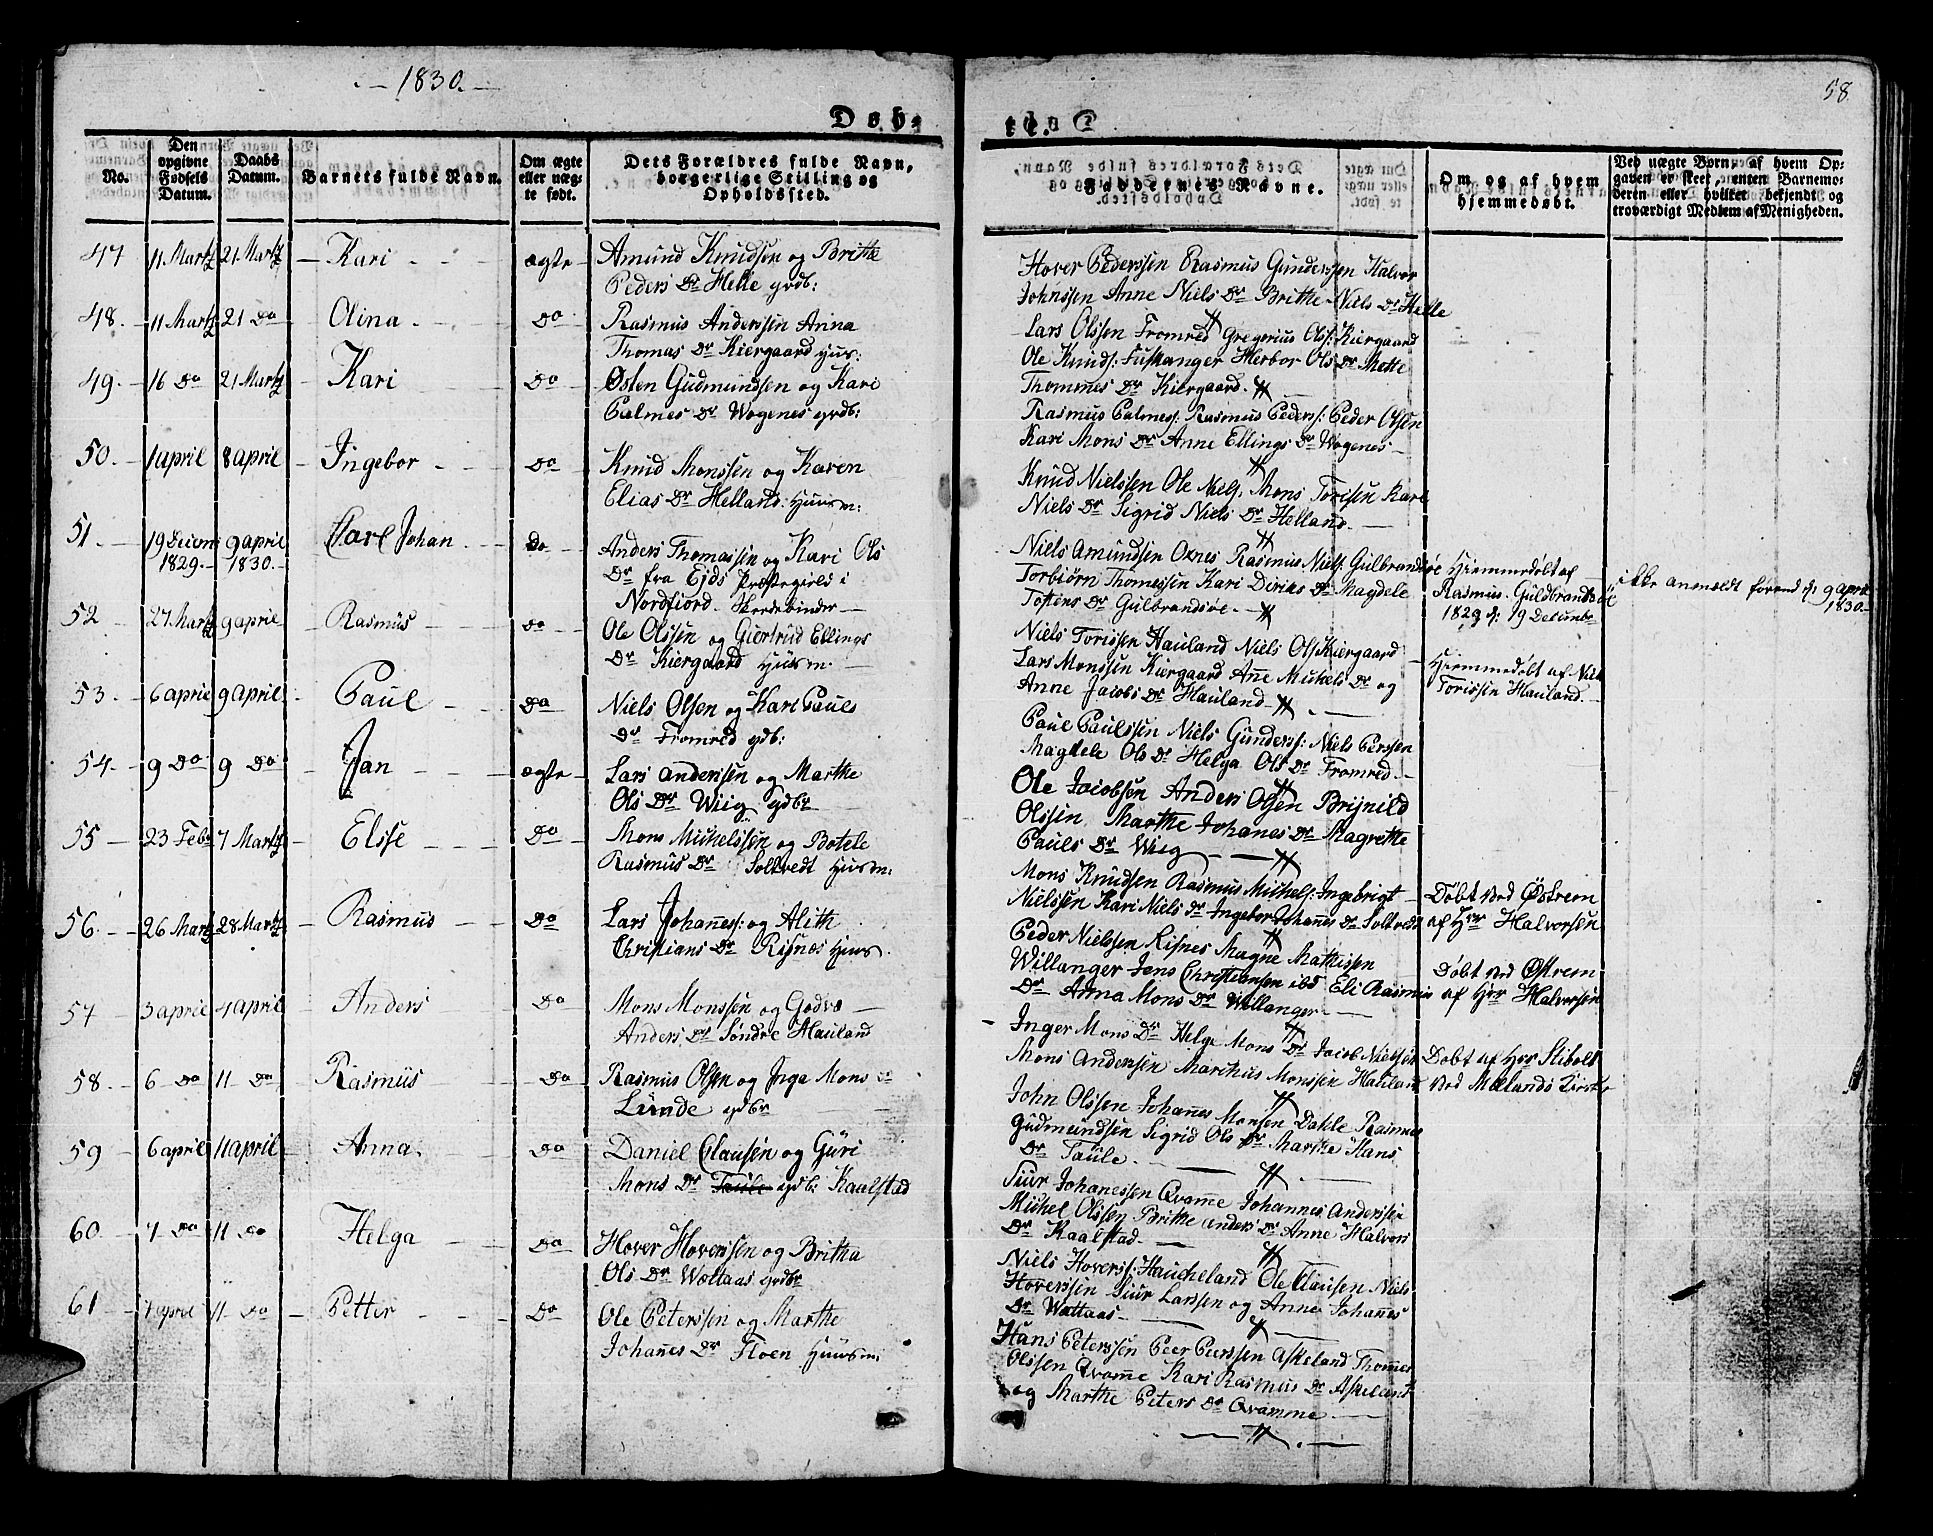 1830.
58
Døb-
te.
No.
Den opgivne Fødsels Datum.
Daabs Datum.
Barnets fulde Navn.
Om ægte eller uægte født.
Dets Forældres fulde Navn, borgerlige Stilling og Opholdssted.
Faddernes Navne.
Om og af hvem hjemmedøbt.
Ved uægte Børn, af hvem Opgaven er skeet, enten Barnemoderen eller hvilket bekjendt og troværdigt Medlem af Menigheden.
47 11 Martz 21 Martz Kari ægte Amund Knudsen og Brithe
Peders Dr Helle grdb:
Hover Pederssen Rasmus Gunderssen Halvor
Johnssen Anne Niels Dr Brithe Niels Dr Helle
48. 11 Martz 21 Do Olina Do Rasmus Anderssen Anna
Thomas Dr Kiergaard Huus:
Lars Olssen Fromred Gregerius Ols: Kiergaard
Ole Knuds: Fuskanger Herbor Ols Dr Mette
Thommes Dr Kiergaard.
49. 16 Do 21 Martz Kari Do Østen Gudmundsen og Kari
Palmes Dr Wogenes grdb:
Rasmus Palmes: Rasmus Peders: Peder Olsen
Kari Mons Dr Anne Ellings Dr Wogenes
50. 1 april 8 april Ingebor Do Knud Monssen og Karen
Elias Dr Helland Huusm:
Knud Nielssen Ole Niels: Mons Torissen Kari
Niels Dr Sigrid Niels Dr Helland.
51 19 Decem 1829. 9 april 1830. Carl Johan Do Anders Thomassen og Kari Ols
Dr fra Ejds Præstegield i
Nordfiord. Skredebinder
Niels Amundsen Oxnes Rasmus Niels: Gulbrandsøe
Torbiørn Thomessen Kari Diriks Dr Magdele
Tostens Dr Gulbrandsøe.
Hiemmedøbt af
Rasmus Guldbrandsøe
1829 d: 19 Decembr
ikke anmeldt førend d: 9 april
1830.
52 27 Martz 9 april Rasmus Do Ole Olssen og Giertrud Ellings
Dr Kiergaard Huusm.
Niels Torissen Hauland Niels Ols Kiergaard
Lars Monssen Kiergaard Ane Mickels Dr og
Anne Jacobs Dr Hauland
Hiemmedøbt af Niels
Torissen Hauland.
53. 6 april 9 april Paul Do Niels Olsen og Kari Pauls
Dr Fromred gdb:
Paul Paulssen Niels Gunders: Niels Perssen
Magdele Ols Dr Helga Ols Dr Fromred.
54. 9 Do 9 Do Jan ægte Lars anderssen og Marthe
Ols Dr Wiig gdbr
Ole Jacobsen Anders Olsen Brynild
Olssen Marthe Johanes Dr Magrethe
Pauls Dr Wiig
55 23 Febr 7 Martz Elsse Do Mons Mickelssen og Botele
Rasmus Dr Soltvedt Huusm:
Mons Knudsen Rasmus Mickels: Ingebrigt
Nielssen Kari Niels Dr Ingebor Johanes Dr Soltvedt
Døbt ved Østrem
af Hrr Halvorsen
56. 26 Martz 28 Martz Rasmus Do Lars Johanes: og Alith
Christians Dr Risnes Huus
Peder Nielssen Risnes Magne Mathissen
Willanger Jens Christiansen ibd Eli Rasmus
Dr Anna Mons Dr Willanger
Døbt ved Østrem
af Hrr Halvorsen
57 3 april 4 april Anders Do Mons Monssen og Godve
Anders Dr Søndre Hauland
Inger Mons Dr Helge Mons Dr Jacob Nielsen
Mons Anderssen Marthus Monssen Hauland
Døbt af Hrr Stibolt
ved Mælands Kirke
58 6 Do 11 Do Rasmus Do Rasmus Olsen og Inga Mons Dr
Lunde gdbr
John Olssen Johanes Monsen Dahle Rasmus
Gudmundsen Sigrid Ols Dr Marthe Hans
Dr Taule.
59 6 april 11 april Anna. Do Daniel Clausen og Guri
Mons Dr Taule gdb: Kaalstad
Siur Johanessen Qvame Johannes Anderssen
Mickel Olssen Brithe anders Dr Anne Halvors
Dr Kaalstad.
60. 7 Do 11 Do Helga Do Hover Hoverssen og Britha
Ols Dr Wættaas grdbr
Niels Hovers: Haucheland Ole Clausen Niels
Hoverssen Siur Larssen og Anne Johanes
Dr Wættaas
61 7 april 11 Do Petter Do Ole Peterssen og Marthe
Johanes Dr Floen Huusm:
Hans Peterssen Peer Peerssen Askeland Thomes
Olssen Qvamme Kari Rasmus Dr Askeland
og Marthe Peters Dr Qvamme